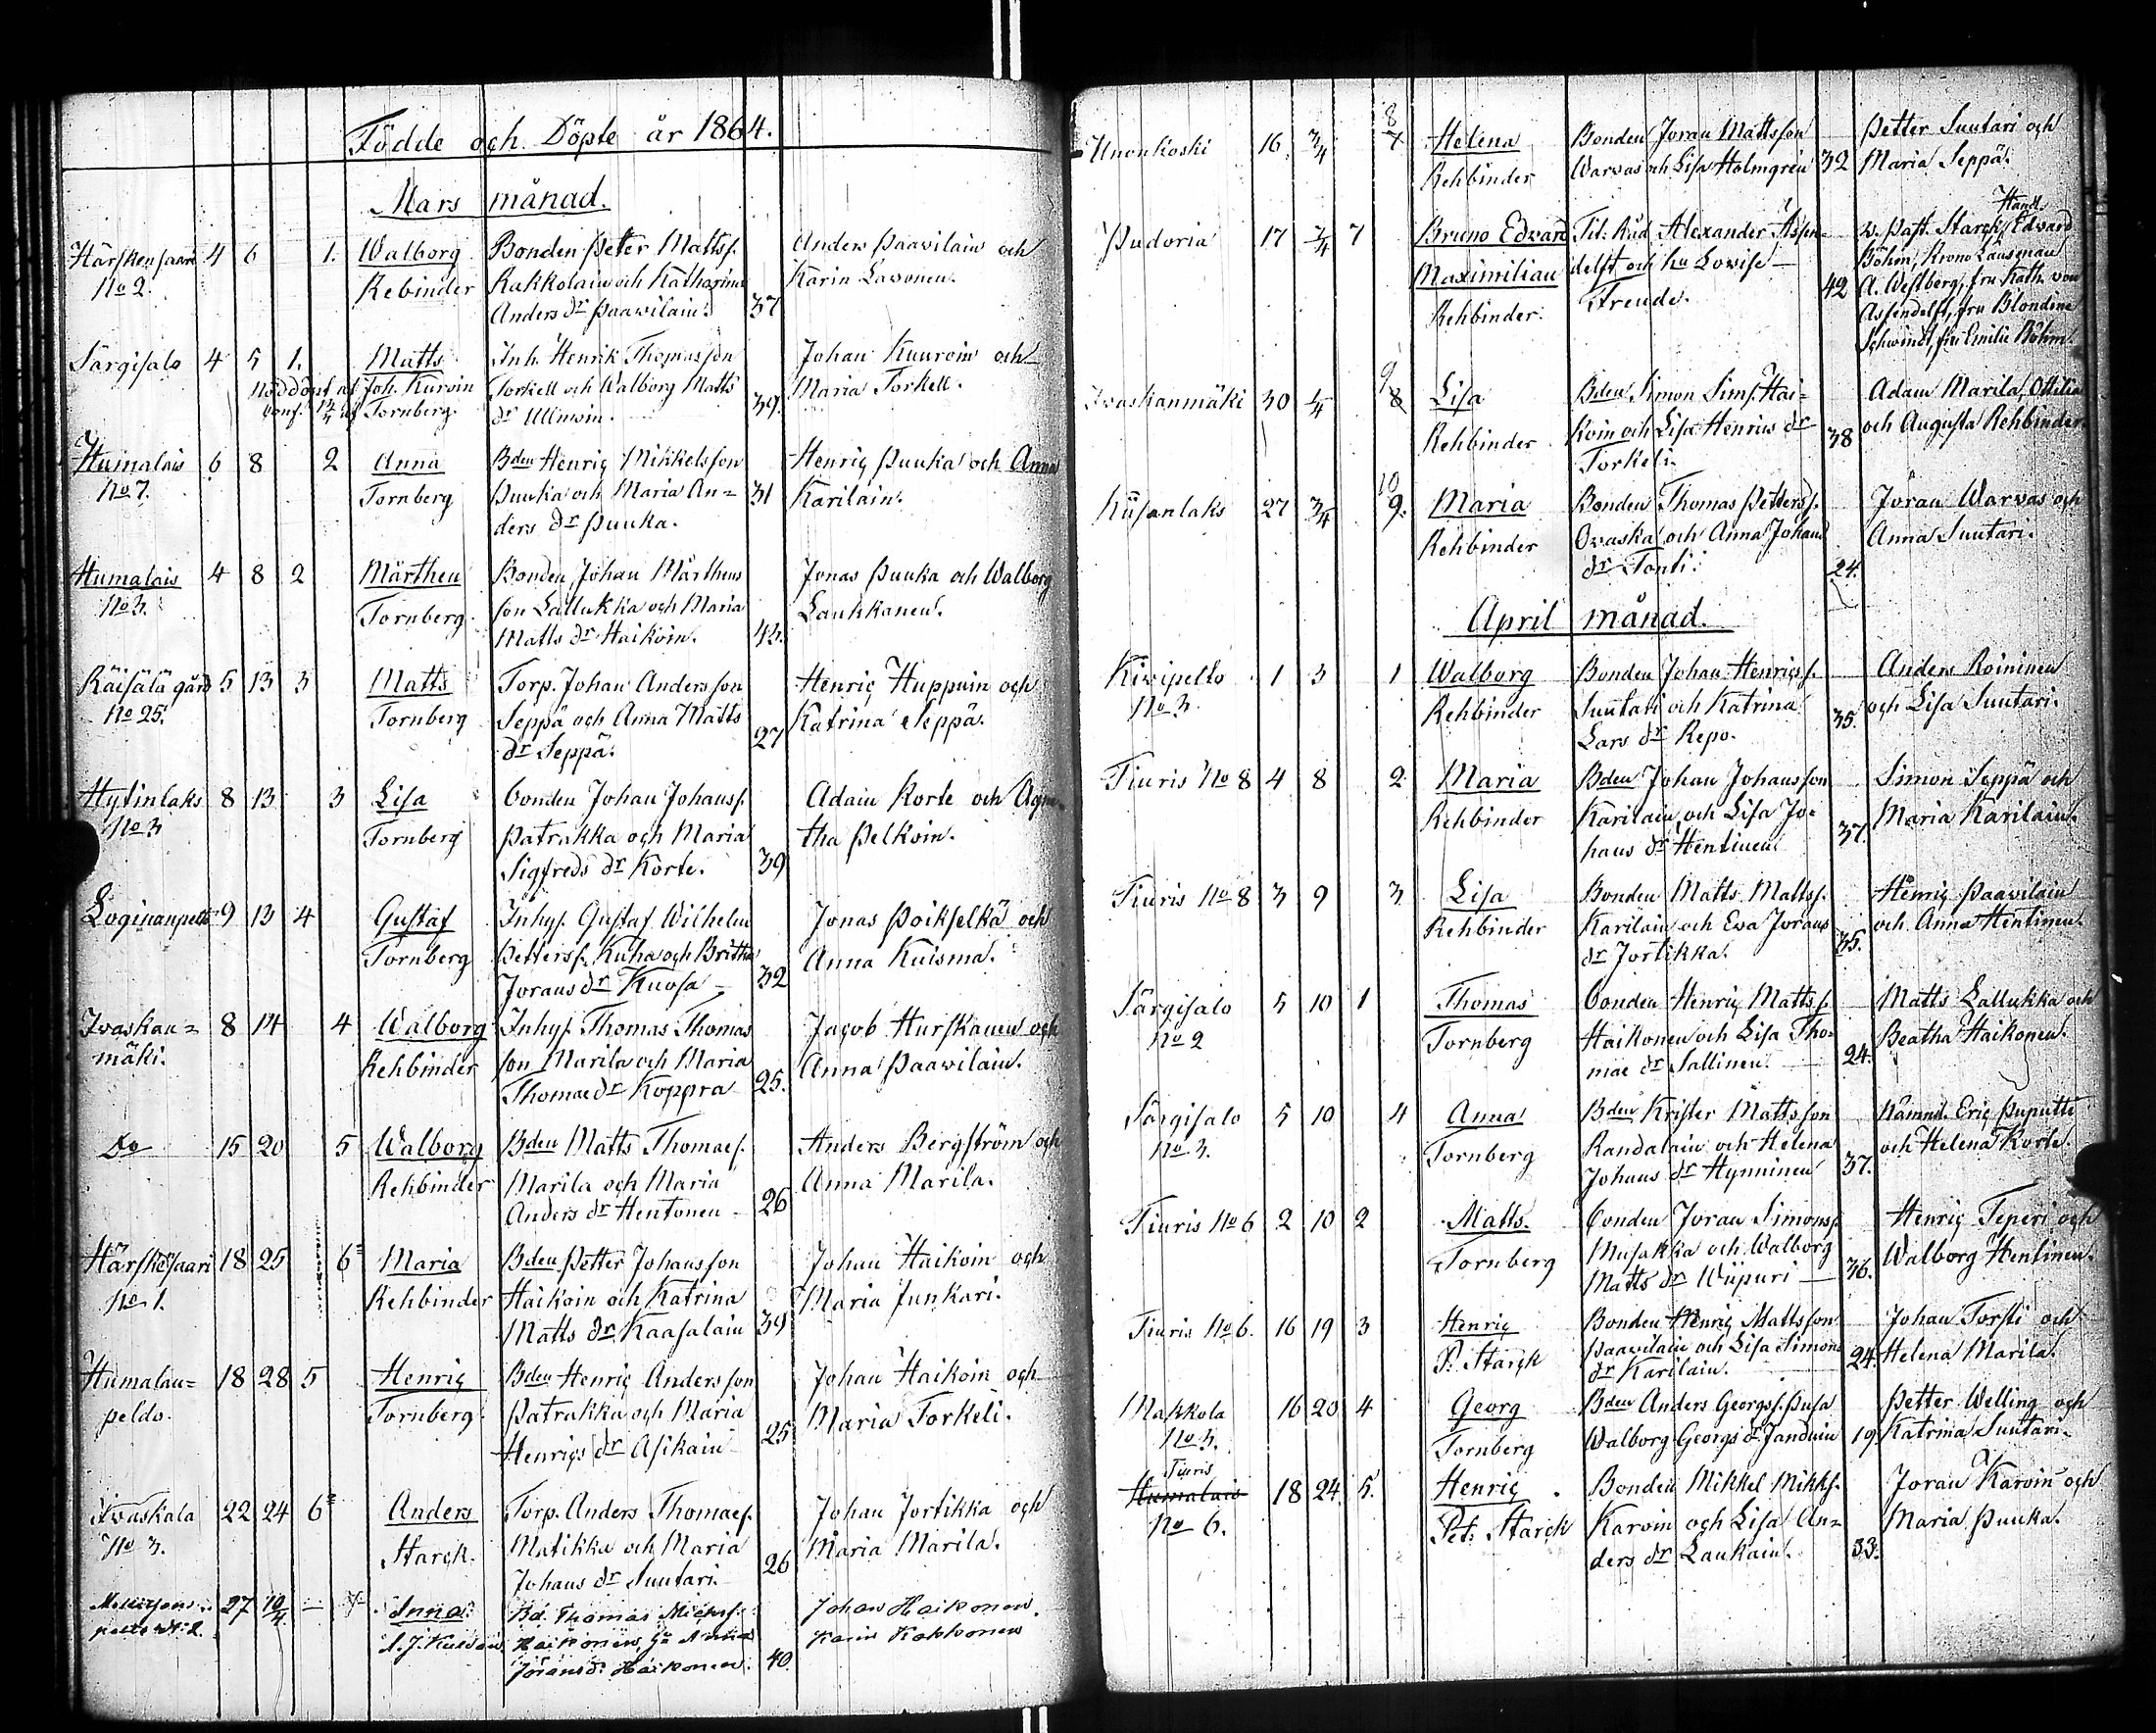 Födde och Döpte år 1864.
Mars månad.
Härskensaari 4 6 1. Walborg Bonden Peter Mattss. Anders Paavilain och
No 2. Rebinder Rakkolain och Katharina Karin Lavonen.
Anders dr Paavilain. 37
Särgisalo 4 5 1. Matts Inh. Henrik Thomasson Johan Kuuroin och
Nöddöpt af Joh. Kurvin Torkell och Walborg Matts Maria Torkell.
Tornberg. dr Ullmoin. 39.
Humalais 6 8 2 Anna Bden Henric Mikkelsson Henric Puuka och Anna
No 7. Tornberg Puuka och Maria An= 31 Karilain.
ders dr Puuka.
Humalais 4 8 2 Mårthen Bonden Johan Mårthens Jonas Puuka och Walborg
No 3. Tornberg. son Lallukka och Maria Lauhkanen.
Matts dr Haikoin. 43.
Räisälä gård 5 13 3 Matts Torp. Johan Andersson Henric Huppuin och
No 25. Tornberg Seppä och Anna Matts Katrina Seppä.
dr Seppä. 27
Hytinlaks 8 13 3 Lisa Bonden Johan Johanss. Adam Korte och Agne=
No 3 Tornberg Patrakka och Maria tha Pelkoin.
Sigfreds dr Korte. 39
Loginanpelto 9 13 4 Gustaf Inhys. Gustaf Wilhelm Jonas Poikselkä och
Tornberg Petterss. Kuha och Britha Anna Kuisma.
Jorans dr Kuosa 32
Ivaskan= 8 14 4 Walborg Inhys. Thomas Thomas Jacob Hurskanen och
mäki. Rehbinder son Marila och Maria Anna Paavilain.
Thomae dr Koppra 25.
Do 15 20 5 Walborg Bden Matts Thomaes. Anders Bergström och
Rehbinder Marila och Maria Anna Marila.
Anders dr Hentonen 26
Härskesaari 18 25 6 Maria Bden Petter Johansson Johan Haikoin och
No 1. Rehbinder Haikoin och Katrina Maria Junkari.
Matts dr Kaasalain 39
Humalan= 18 28 5 Henric Bden Henric Andersson Johan Haikoin och
peldo. Tornberg. Patrakka och Maria Maria Torkeli.
Henrics dr Asikain 25
Ivaskala 22 24 6 Anders Torp. Anders Thomaes. Johan Jortikka och
No 3. Starck. Matikka och Maria Maria Marila.
Johans dr Suutari. 26
27 10/4 — 7 Anna Bd. Thomas Michelss. Johan Haikonen.
Haikonen, Anna Karin Kokkonen
Jöransd. Haikonen. 40.
Unonkoski 16 3/4 8 7 Helena Bonden Joran Mattsson Petter Suutari och
Rehbinder Warvas och Lisa Holmgrén 32 Maria Seppä.
Pudoria 17 7/4 7 Bruno Edvard Tit. Råd. Alexander Assen= v. Past. Starck, Hand. Edvard
Maximilian delft och hu Lovise Böhm, Krono Länsman
Rehbinder. Freude. 42 A. Westberg, fru Kath. von
Assendelft, fru Blondine
Schwindt, fru Emilie Böhm.
Ivaskanmäki 30 4/4 9 8 Lisa Bden Simon Sims. Hai= Adam Marila, Ottilia
Rehbinder koin och Lisa Henrics dr 38 och Augusta Rehbinder.
Torkeli.
Kiisanlaks 27 3/4 10 9. Maria Bonden Thomas Petterss. Jöran Warvas och
Rehbinder Ovaska och Anna Johans Anna Suutari.
dr Tonti. 24.
April månad.
Kivipelto 1 3 1 Walborg Bonden Johan Henricss. Anders Roininen
No 3. Rehbinder Suutari och Katrina och Lisa Suutari.
Lars dr Repo. 35.
Tiuris No 8 4 8 2. Maria Bden Johan Johansson Simon Seppä och
Rehbinder Karilain och Lisa Jo= Maria Karilain.
hans dr Hentinen 37.
Tiuris No 8 3 9 3 Lisa Bonden Matts Mattss. Henric Paavilain
Rehbinder Karilain och Eva Jorans och Anna Hentinen.
dr Jortikka. 35.
Särgisalo 5 10 1 Thomas Bonden Henric Mattss. Matts Lallukka och
No 2 Tornberg Haikonen och Lisa Tho= Beatha Haikonen.
mae dr Sallinen. 24.
Särgisalo 5 10 4 Anna Bden Krister Mattsson Nämnd. Eric Puputti
No 3. Tornberg Randalain och Helena och Helena Korte
Johans dr Hynninen 37.
Tiuris No 6 2 10 2 Matts. Bonden Joran Simonss. Henric Teperi och
Tornberg Musakka och Walborg Walborg Hentinen.
Matts dr Wiipuri 36.
Tiuris No 6. 16 19 3 Henric Bonden Henric Mattsson Johan Torsti och
P. Starck Paavilain och Lisa Simons 24. Helena Marila.
dr Karilain.
Makkola 16 20 4 Georg Bden Anders Georgss. Pusa Petter Welling och
No 3. Tornberg Walborg Georgs dr Janduin 19 Katrina Suutari.
Tiuris
Humalais 18 24. 5. Henric Bonden Mikkel Mikks. Joran Karvin och
No 6. Pet. Starck Karvin och Lisa An= Maria Puuka.
ders dr Laukain. 33.